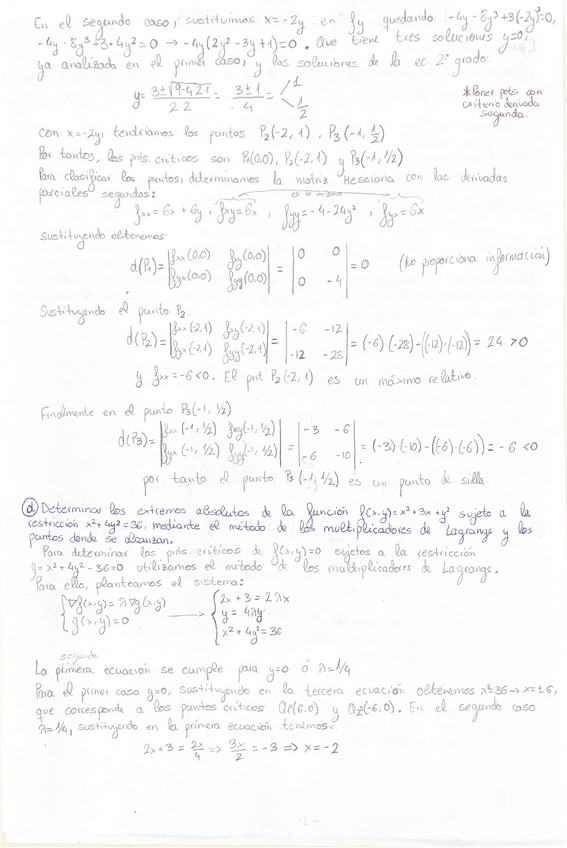 En el segundo caso, sustituimos x=-2y en fy quedando -4y-8y³+3(-2y)²=0,
-4y-8y³+3·4y²=0 → -4y(2y²-3y+1)=0. Que tiene tres soluciones y=0,
ya analizada en el primer caso, y las soluciones de la ec. 2º grado:
y= 3±√9-4·2·1 / 2·2 = 3±1 / 4 = 1 / 1/2
*Poner ptos con
criterio derivada
segunda.
con x=-2y, tendríamos los puntos P₂(-2,1), P₃(-1,1/2)
Por tantos, los ptos. críticos son P₁(0,0), P₂(-2,1) y P₃(-1,1/2)
Para clasificar los puntos, determinamos la matriz Hessiana con las derivadas
parciales segundas:
es lo mismo
fxx=6x+6y, fxy=6x, fyy=-4-24y², fyx=6x
Sustituyendo obtenemos:
d(P₁)= |fxx(0,0) fxy(0,0)| = |0 0| = 0 (No proporciona información)
|fyx(0,0) fyy(0,0)| |0 -4|
Sustituyendo el punto P₂
d(P₂)= |fxx(-2,1) fxy(-2,1)| = |-6 -12| = (-6)·(-28)-((-12)·(-12)) = 24 >0
|fyx(-2,1) fyy(-2,1)| |-12 -28|
y fxx=-6<0. El pnt P₂(-2,1) es un máximo relativo.
Finalmente en el punto P₃(-1,1/2)
d(P₃)= |fxx(-1,1/2) fxy(-1,1/2)| = |-3 -6| = (-3)·(-10)-((-6)·(-6)) = -6 <0
|fyx(-1,1/2) fyy(-1,1/2)| |-6 -10|
por tanto el punto P₃(-1,1/2) es un punto de silla.
d) Determinar los extremos absolutos de la función f(x,y)=x²+3x+y² sujeto a la
restricción x²+4y²=36, mediante el método de los multiplicadores de Lagrange y los
puntos donde se alcanzan.
Para determinar los ptos. críticos de f(x,y)=0 sujetos a la restricción
g=x²+4y²-36=0 utilizamos el método de los multiplicadores de Lagrange.
Para ello, planteamos el sistema:
{∇f(x,y)=λ∇g(x,y) → {2x+3=2λx
g(x,y)=0 y=4λy
x²+4y²=36
segunda
La primera ecuación se cumple para y=0 ó λ=1/4.
Para el primer caso y=0, sustituyendo en la tercera ecuación obtenemos x²=36→x=±6,
que corresponde a los puntos críticos Q₁(6,0) y Q₂(-6,0). En el segundo caso
λ=1/4, sustituyendo en la primera ecuación tenemos:
2x+3= 2x/4 ⇒ 3x/2 =-3 ⇒ x=-2